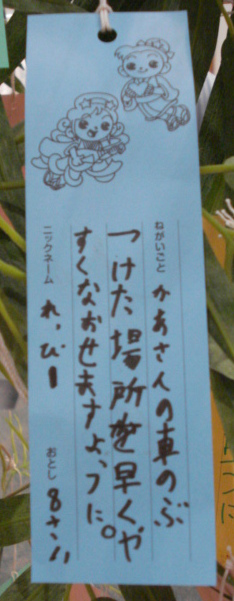 ねがいごと かあさんの車のぶ
つけた場所を早くや
すくなおせますように。
ニックネーム れっびー おとし 8さい